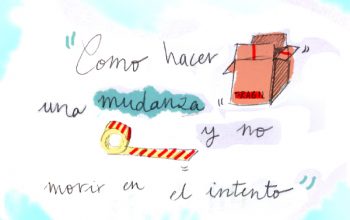 "Como hacer
una mudanza
y no
morir en el intento"